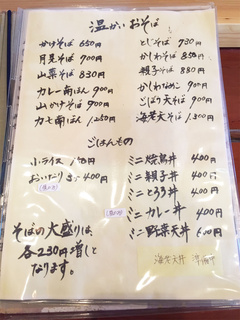 温かいおそば
かけそば 650円
月見そば 900円
山菜そば 830円
カレー南ばん 900円
山かけそば 900円
かも南ばん 1,250円
とじそば 930円
かしわそば 850円
親子そば 880円
かしわなめこ 900円
ごぼう天そば 900円
海老天そば 1,300円
ごはんもの
小ライス 150円
おいなり 400円
そばの大盛りは
各230円増しと
なります。
ミニ焼鳥丼 400円
ミニ親子丼 400円
ミニとろろ丼 400円
ミニカレー丼 400円
ミニ野菜天丼 600円
海老天丼